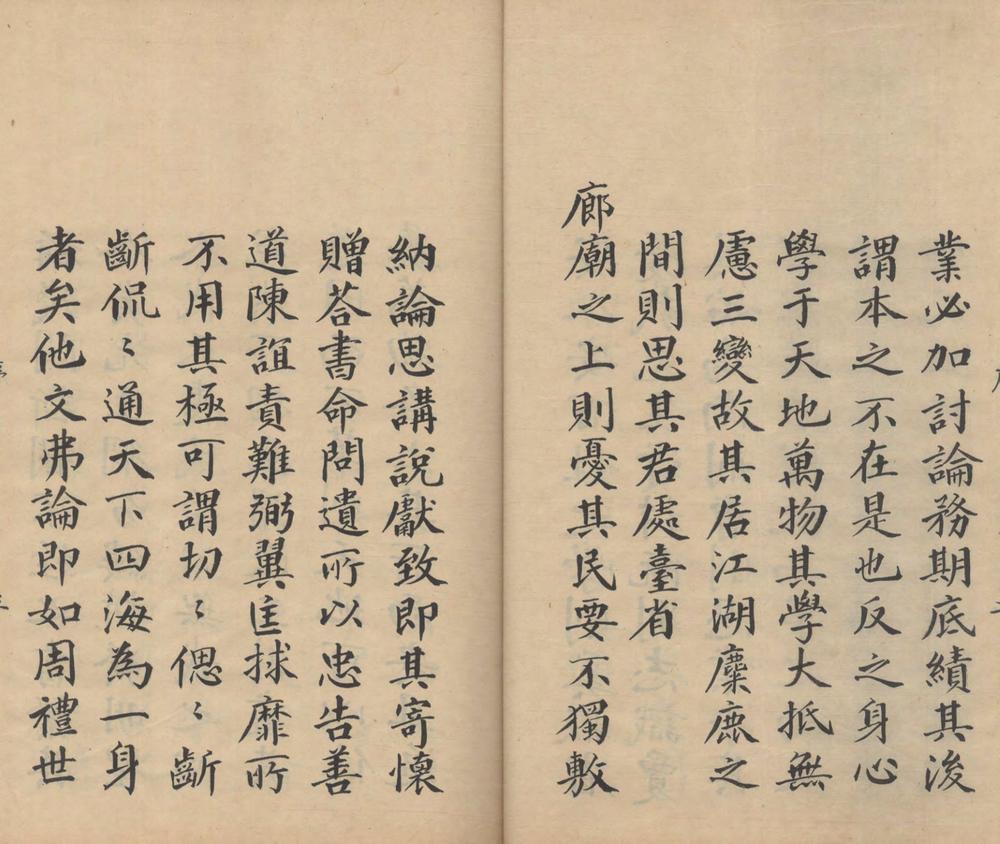 業必加討論務期底績其後
謂本之不在是也反之身心
學于天地萬物其學大抵無
慮三變故其居江湖麋鹿之
間則思其君處臺省
廊廟之上則憂其民要不獨敷
納論思講說獻致即其寄懷
贈荅書命問遺所以忠告善
道陳誼責難弼翼匡捄靡所
不用其極可謂切〻偲〻斷
斷侃〻通天下四海為一身
者矣他文弗論即如周禮世